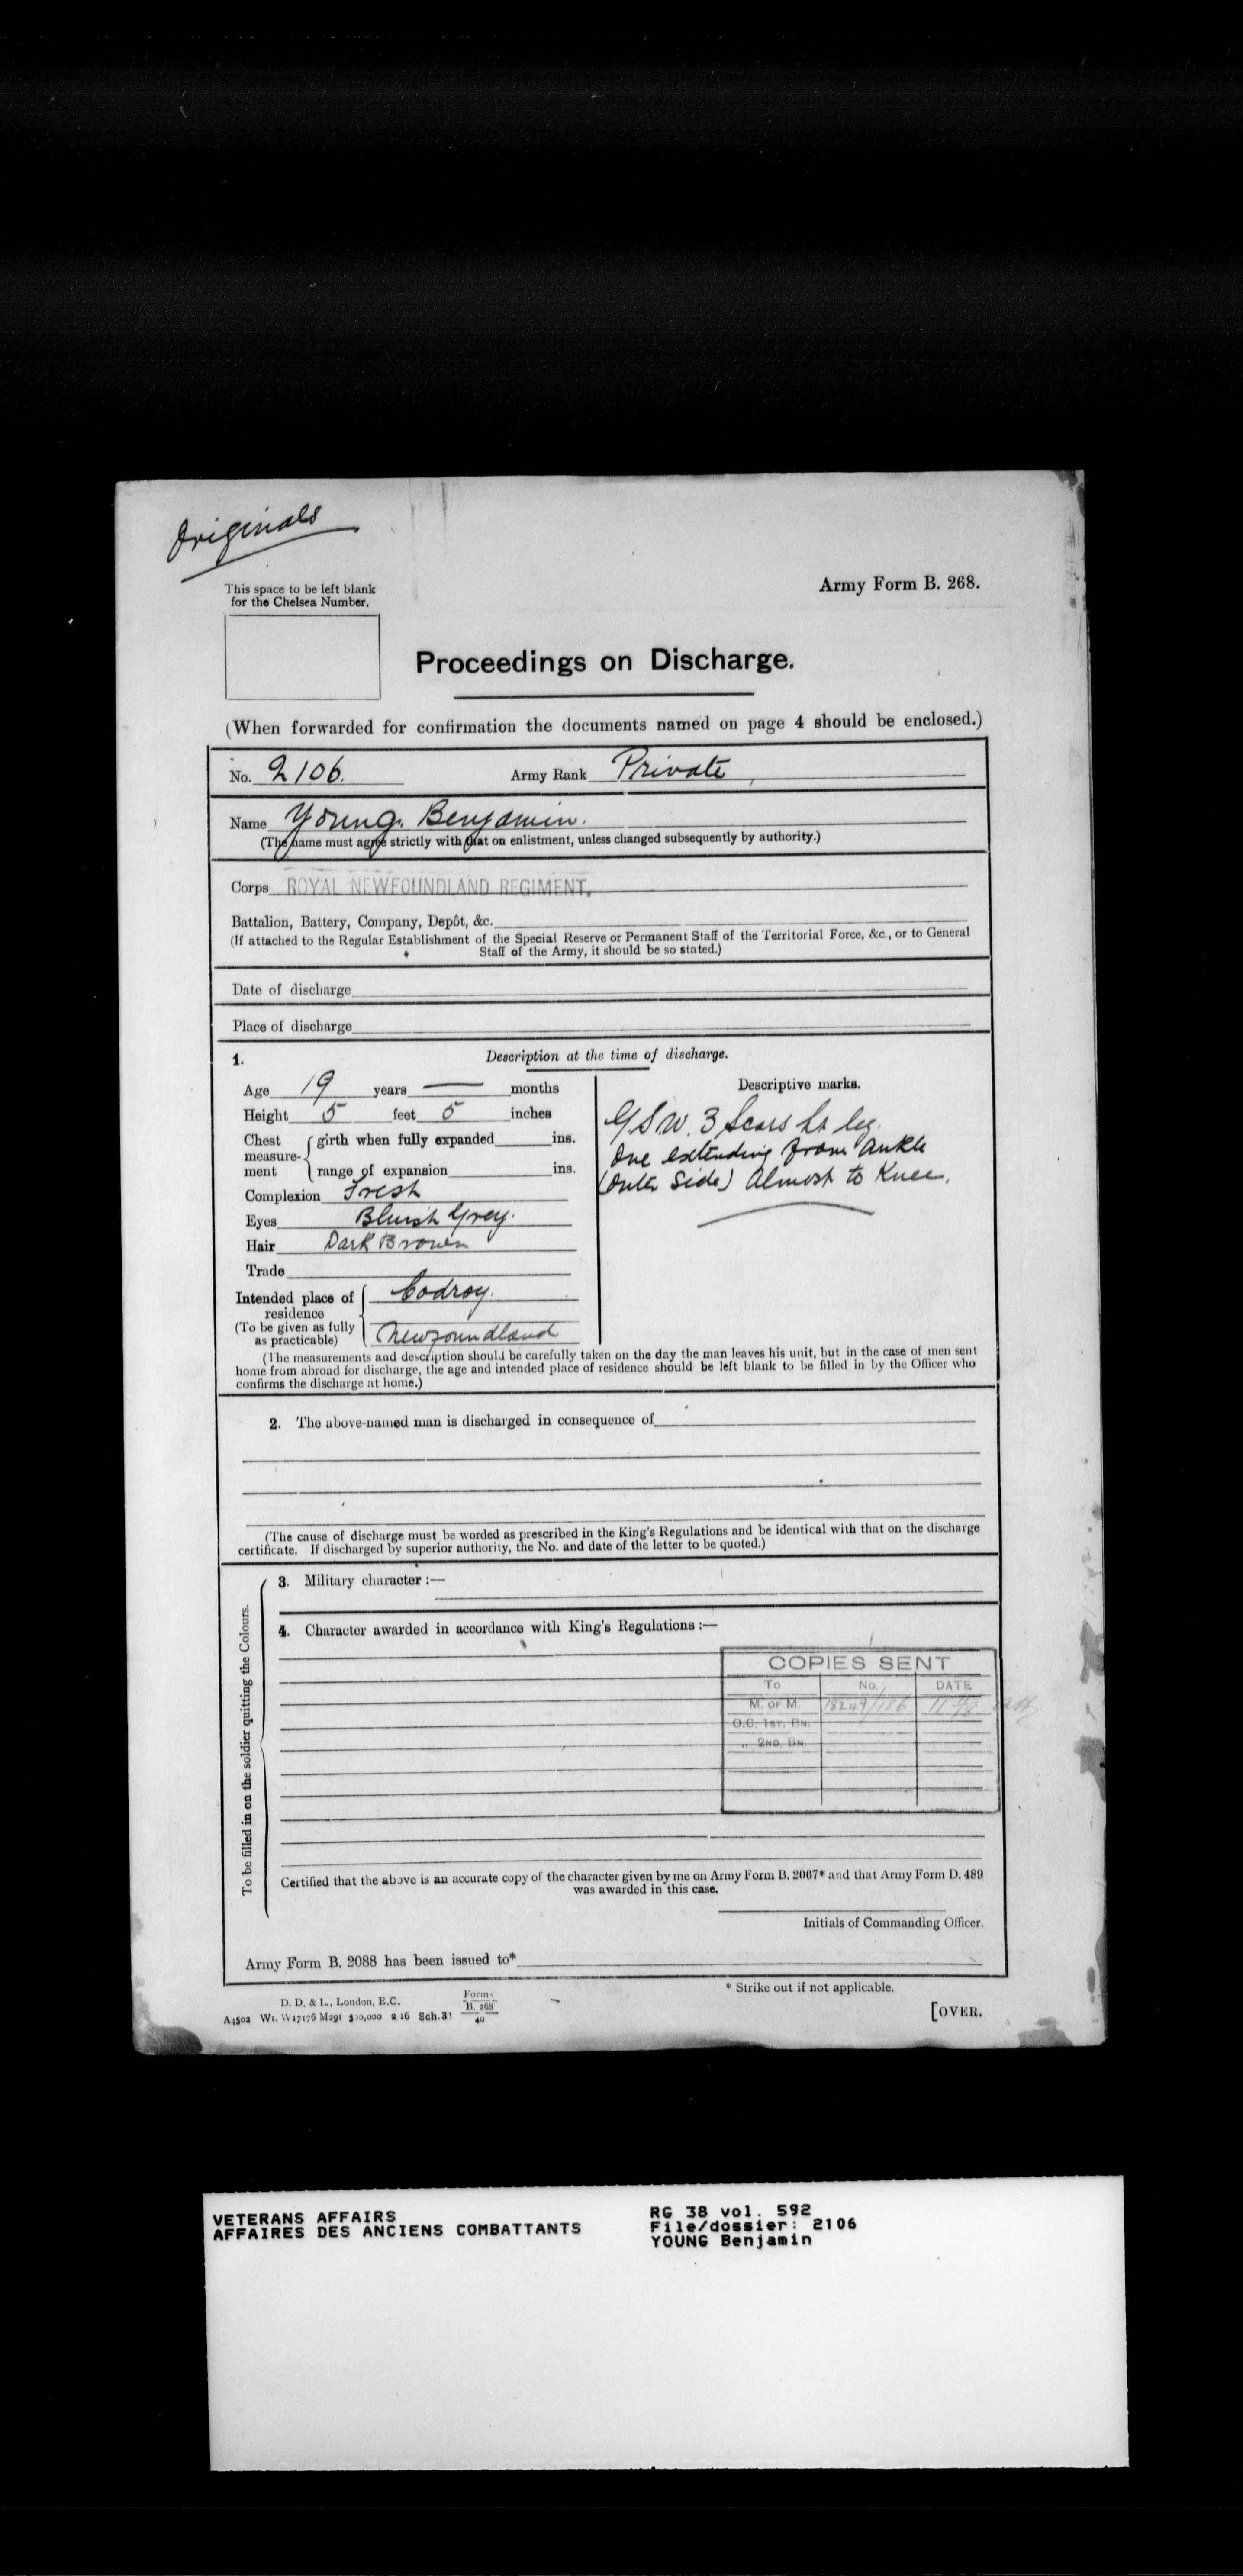 Originals
This space to be left blank
for the Chelsea Number.
Army Form B. 268.
Proceedings on Discharge.
(When forwarded for confirmation the documents named on page 4 should be enclosed.)
No. 2106. Army Rank Private
Name Young. Benjamin.
(The name must agree strictly with that on enlistment, unless changed subsequently by authority.)
Corps ROYAL NEWFOUNDLAND REGIMENT.
Battalion, Battery, Company, Depôt, &c.
(If attached to the Regular Establishment of the Special Reserve or Permanent Staff of the Territorial Force, &c., or to General
Staff of the Army, it should be so stated.)
Date of discharge
Place of discharge
1. Description at the time of discharge.
Age 19 years — months
Height 5 feet 5 inches
Chest measurement { girth when fully expanded ins.
range of expansion ins.
Complexion Fresh
Eyes Bluish Grey.
Hair Dark Brown
Trade
Intended place of residence
(To be given as fully as practicable) { Codroy.
Newfoundland
Descriptive marks.
GSW. 3 Scars Lt leg.
One extending from ankle
(outer side) almost to Knee.
(The measurements and description should be carefully taken on the day the man leaves his unit, but in the case of men sent
home from abroad for discharge, the age and intended place of residence should be left blank to be filled in by the Officer who
confirms the discharge at home.)
2. The above-named man is discharged in consequence of
(The cause of discharge must be worded as prescribed in the King's Regulations and be identical with that on the discharge
certificate. If discharged by superior authority, the No. and date of the letter to be quoted.)
To be filled in on the soldier quitting the Colours.
3. Military character :—
4. Character awarded in accordance with King's Regulations :—
COPIES SENT
To No. DATE
M. OF M. 18249/186
O.C. 1ST. BN.
" 2ND. BN.
Certified that the above is an accurate copy of the character given by me on Army Form B. 2067* and that Army Form D. 489
was awarded in this case.
Initials of Commanding Officer.
Army Form B. 2088 has been issued to*
* Strike out if not applicable.
D. D. & L., London, E.C.
A4502 Wt. W17176 M291 8 16 Sch. 31
Forms
B. 268
40
[OVER.
VETERANS AFFAIRS
AFFAIRES DES ANCIENS COMBATTANTS
RG 38 vol. 592
File/dossier: 2106
YOUNG Benjamin